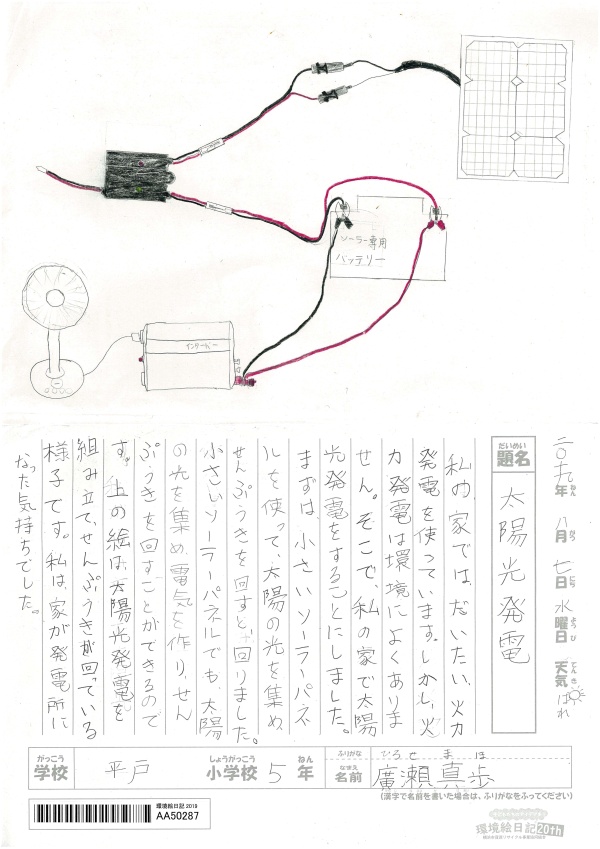 ソーラー専用
バッテリー
インバーター
二〇一九年 八月 七日 水曜日 天気 はれ
ねん がつ にち ようび てんき
だいめい
題名
太陽光発電
私の家では、だいたい、火力
発電を使っています。しかし、火
力発電は環境によくありま
せん。そこで、私の家で太陽
光発電をすることにしました。
まずは、小さいソーラーパネ
ルを使って、太陽の光を集め、
せんぷうきを回すと、回りました。
小さいソーラーパネルでも、太陽
の光を集め、電気を作り、せん
ぷうきを回すことができるので
す。上の絵は、太陽光発電を
組み立て、せんぷうきが回っている
様子です。私は、家が発電所に
なった気持ちでした。
がっこう
学校
平戸
しょうがっこう ねん
小学校 5年
ふりがな ひろせ まほ
なまえ
名前 廣瀬真歩
(漢字で名前を書いた場合は、ふりがなをふってください)
環境絵日記 2019
AA50287
環境絵日記20th